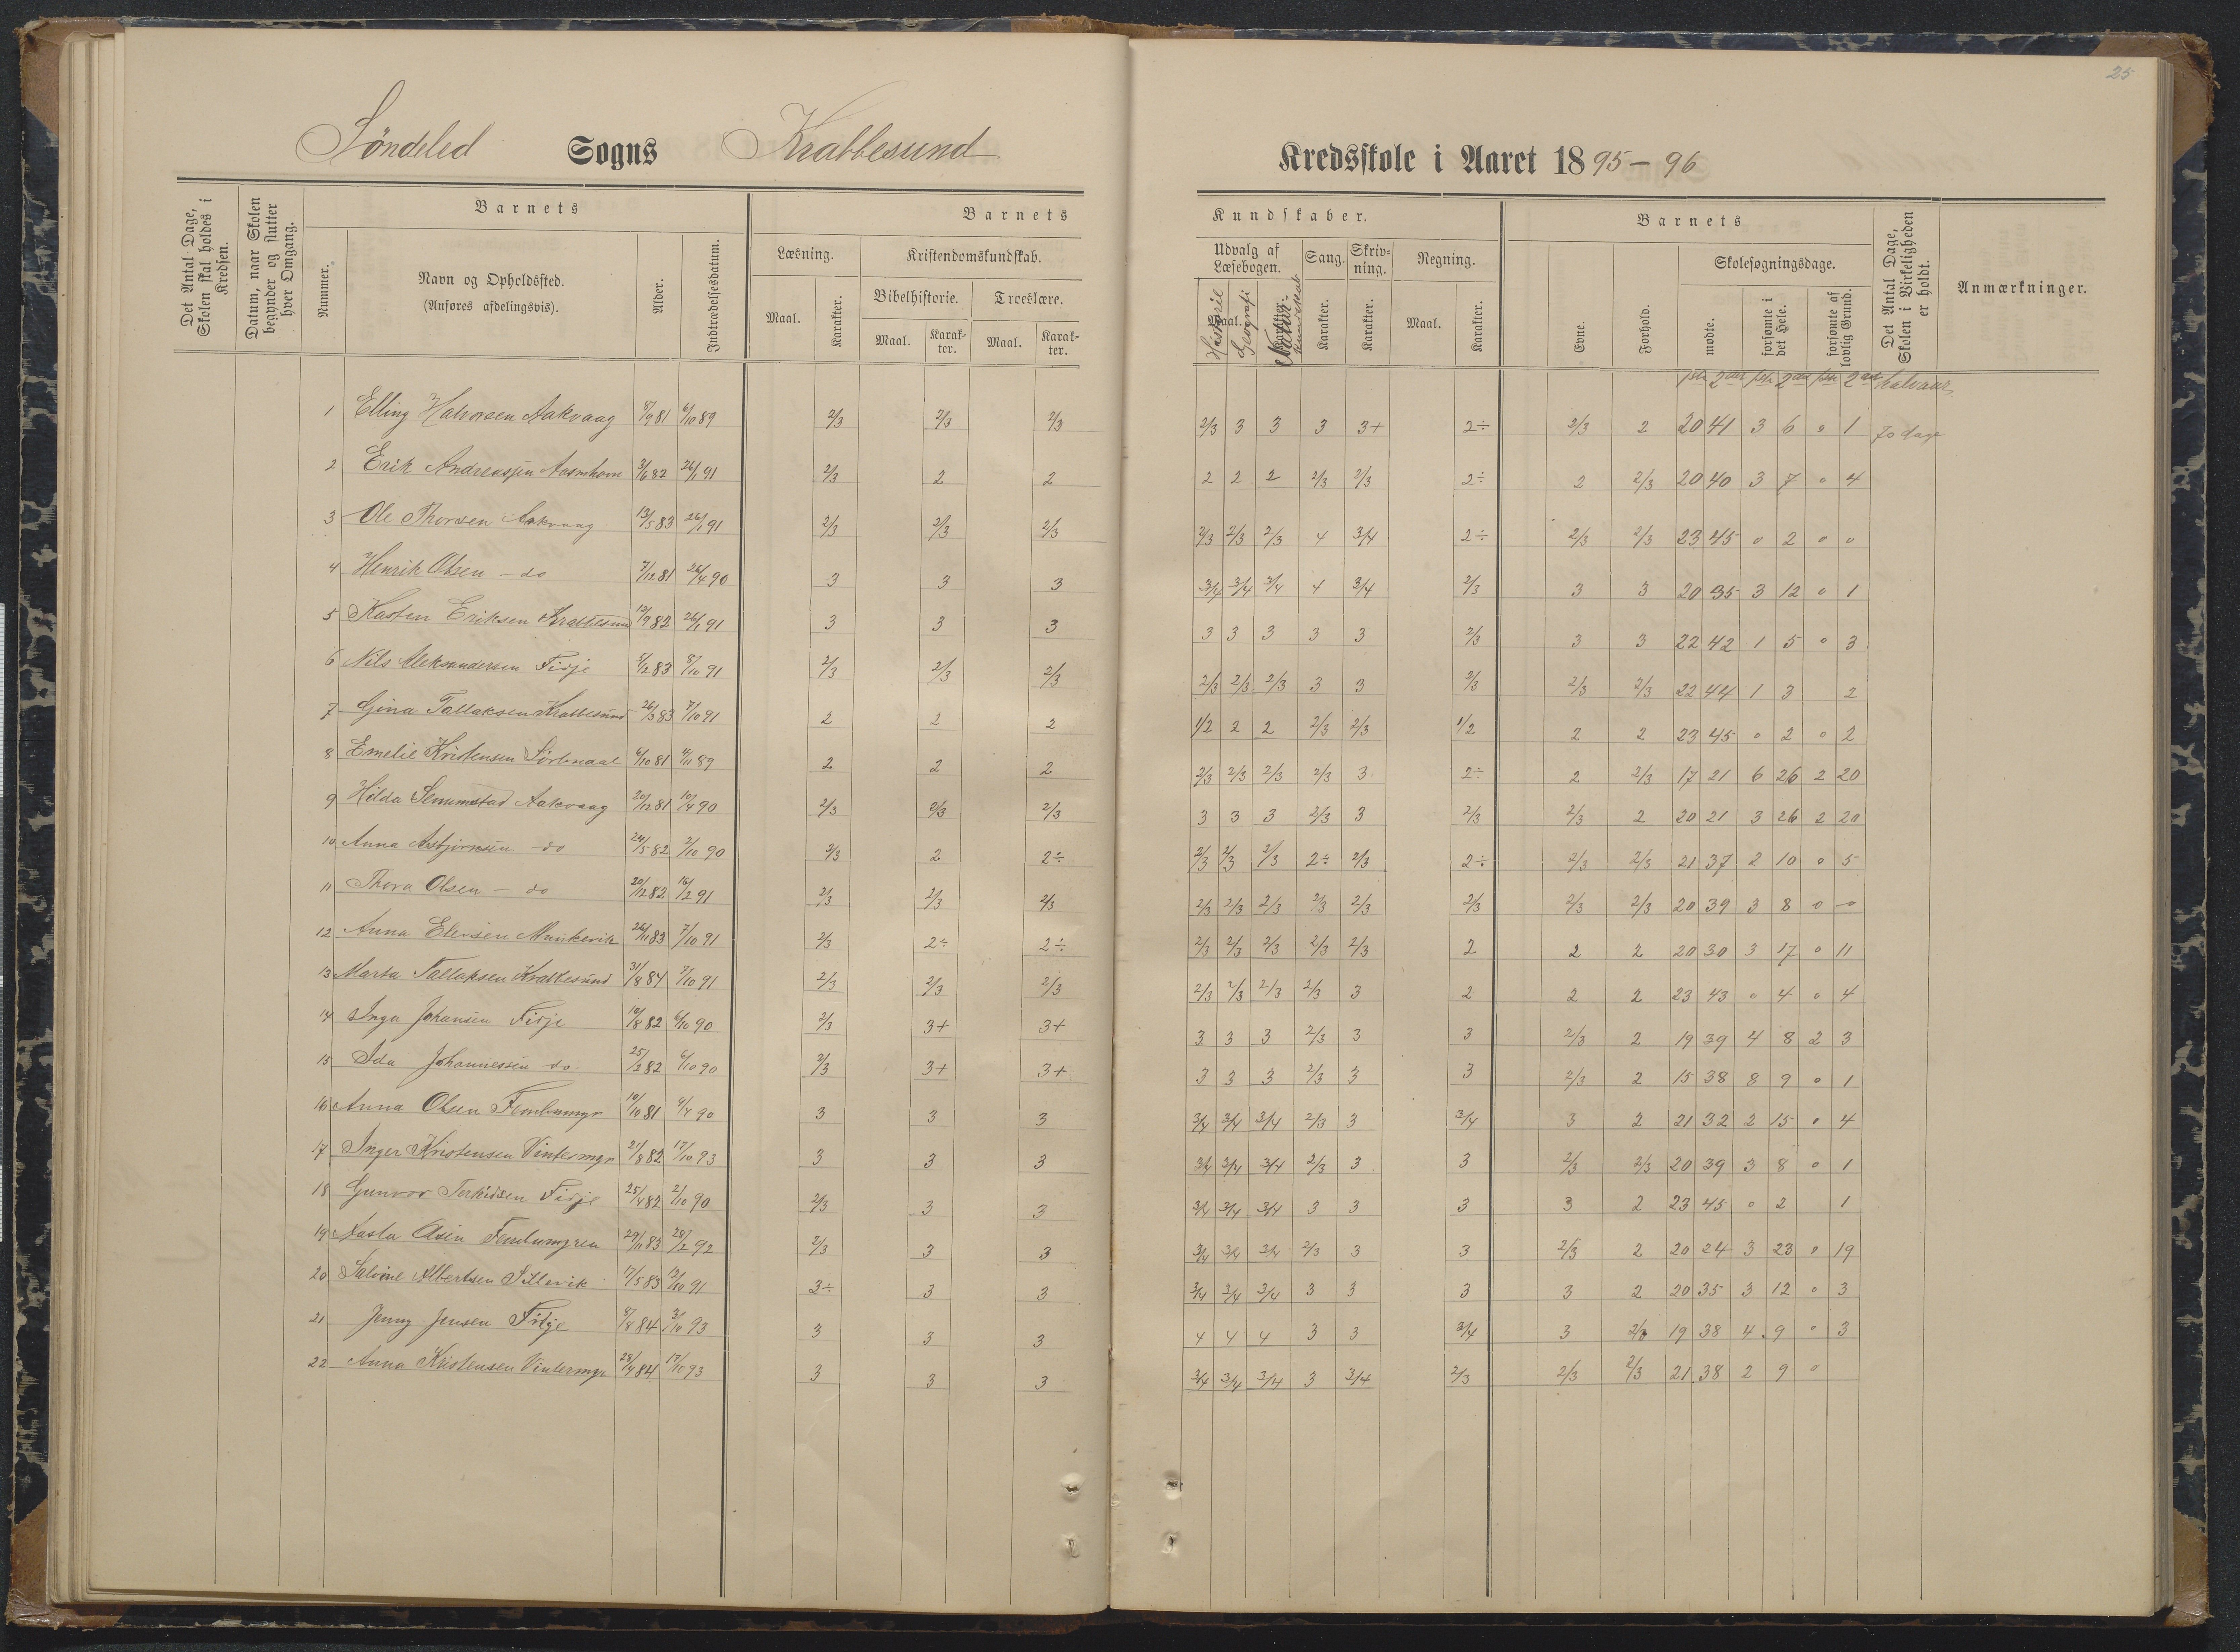 25
Søndeled Sogns Krabbesund Kredsskole i Aaret 1895–96
Det Antal Dage, Skolen skal holdes i Kredsen.
Datum, naar Skolen begynder og slutter hver Omgang.
Barnets
Nummer.
Navn og Opholdssted.
(Anføres afdelingsvis).
Alder.
Indtrædelsesdatum.
Barnets Kundskaber.
Læsning.
Maal. Karakter.
Kristendomskundskab.
Bibelhistorie. Troeslære.
Maal. Karak-ter. Maal. Karak-ter.
Udvalg af Læsebogen. Sang. Skriv-ning. Regning.
Maal. Karakter. Karakter. Karakter. Maal. Karakter.
Historie Geografi Naturkundskab
Barnets
Evne. Forhold.
Skolesøgningsdage.
mødte. forsømte i det Hele. forsømte af lovlig Grund.
Det Antal Dage, Skolen i Virkeligheden er holdt.
Anmærkninger.
1ste 2det 1ste 2det 1ste 2det halvaar
1 Elling Halvorsen Aakvaag 8/9 81 6/10 89 2/3 2/3 2/3 2/3 3 3 3 3+ 2÷ 2/3 2 20 41 3 6 0 1 70 dage
2 Erik Andreassen 3/6 82 26/1 91 2/3 2 2 2 2 2 2/3 2/3 2÷ 2 2/3 20 40 3 7 0 4
3 Ole Thorsen Aakvaag 13/5 83 26/1 91 2/3 2/3 2/3 2/3 2/3 2/3 4 3/4 2÷ 2/3 2/3 23 45 0 2 0 0
4 Henrik Olsen – do 7/12 81 26/4 90 3 3 3 3/4 3/4 3/4 4 3/4 2/3 3 3 20 35 3 12 0 1
5 Kasten Eriksen Krabbesund 12/9 82 26/1 91 3 3 3 3 3 3 3 3 2/3 3 3 22 42 1 5 0 3
6 Nils Aleksandersen Fidje 5/12 83 8/10 91 2/3 2/3 2/3 2/3 2/3 2/3 3 3 2/3 2/3 2/3 22 44 1 3 2
7 Gina Tallaksen Krabbesund 26/3 83 7/10 91 2 2 2 1/2 2 2 2/3 2/3 1/2 2 2 23 45 0 2 0 2
8 Emelie Kristensen 6/10 81 4/11 89 2 2 2 2/3 2/3 2/3 2/3 3 2÷ 2 2/3 17 21 6 26 2 20
9 Hilda Semmestad Aakvaag 20/12 81 10/4 90 2/3 2/3 2/3 3 3 3 2/3 3 2/3 2/3 2 20 21 3 26 2 20
10 Anna Asbjørnsen – do 24/5 82 2/10 90 2/3 2 2÷ 2/3 2/3 2/3 2÷ 2/3 2÷ 2/3 2/3 21 37 2 10 0 5
11 Thora Olsen – do 20/12 82 16/2 91 2/3 2/3 2/3 2/3 2/3 2/3 2/3 2/3 2/3 2/3 2/3 20 39 3 8 0 0
12 Anna Elevsen Munkevik 26/11 83 7/10 91 2/3 2÷ 2÷ 2/3 2/3 2/3 2/3 2/3 2 2 2 20 30 3 17 0 11
13 Marta Tallaksen Krabbesund 31/8 84 7/10 91 2/3 2/3 2/3 2/3 2/3 2/3 2/3 3 2 2 2 23 43 0 4 0 4
14 Inga Johansen Fidje 10/8 82 6/10 90 2/3 3+ 3+ 3 3 3 2/3 3 3 2/3 2 19 39 4 8 2 3
15 Ida Johannessen do. 25/2 82 6/10 90 2/3 3+ 3+ 3 3 3 2/3 3 3 2/3 2 15 38 8 9 0 1
16 Anna Olsen 10/10 81 9/4 90 3 3 3 3/4 3/4 3/4 2/3 3 3/4 3 2 21 32 2 15 0 4
17 Inger Kristensen Vintermyr 21/8 82 17/10 93 3 3 3 3/4 3/4 3/4 2/3 3 3 2/3 2/3 20 39 3 8 0 1
18 Gunvor Terkildsen Fidje 25/4 82 2/10 90 2/3 3 3 3/4 3/4 3/4 3 3 3 3 2 23 45 0 2 1
19 Aasta Olsen 29/11 83 28/2 92 2/3 3 3 3/4 3/4 3/4 2/3 3 3 2/3 2 20 24 3 23 0 19
20 Salvine Albertsen Sillevik 17/5 83 12/10 91 3÷ 3 3 3/4 3/4 3/4 3 3 3 3 2 20 35 3 12 0 3
21 Jenny Jensen Fidje 8/8 84 3/10 93 3 3 3 4 4 4 3 3 3/4 3 2/3 19 38 4 9 0 3
22 Anna Kristensen Vintermyr 28/4 84 17/10 93 3 3 3 3/4 3/4 3/4 3 3/4 2/3 2/3 2/3 21 38 2 9 0